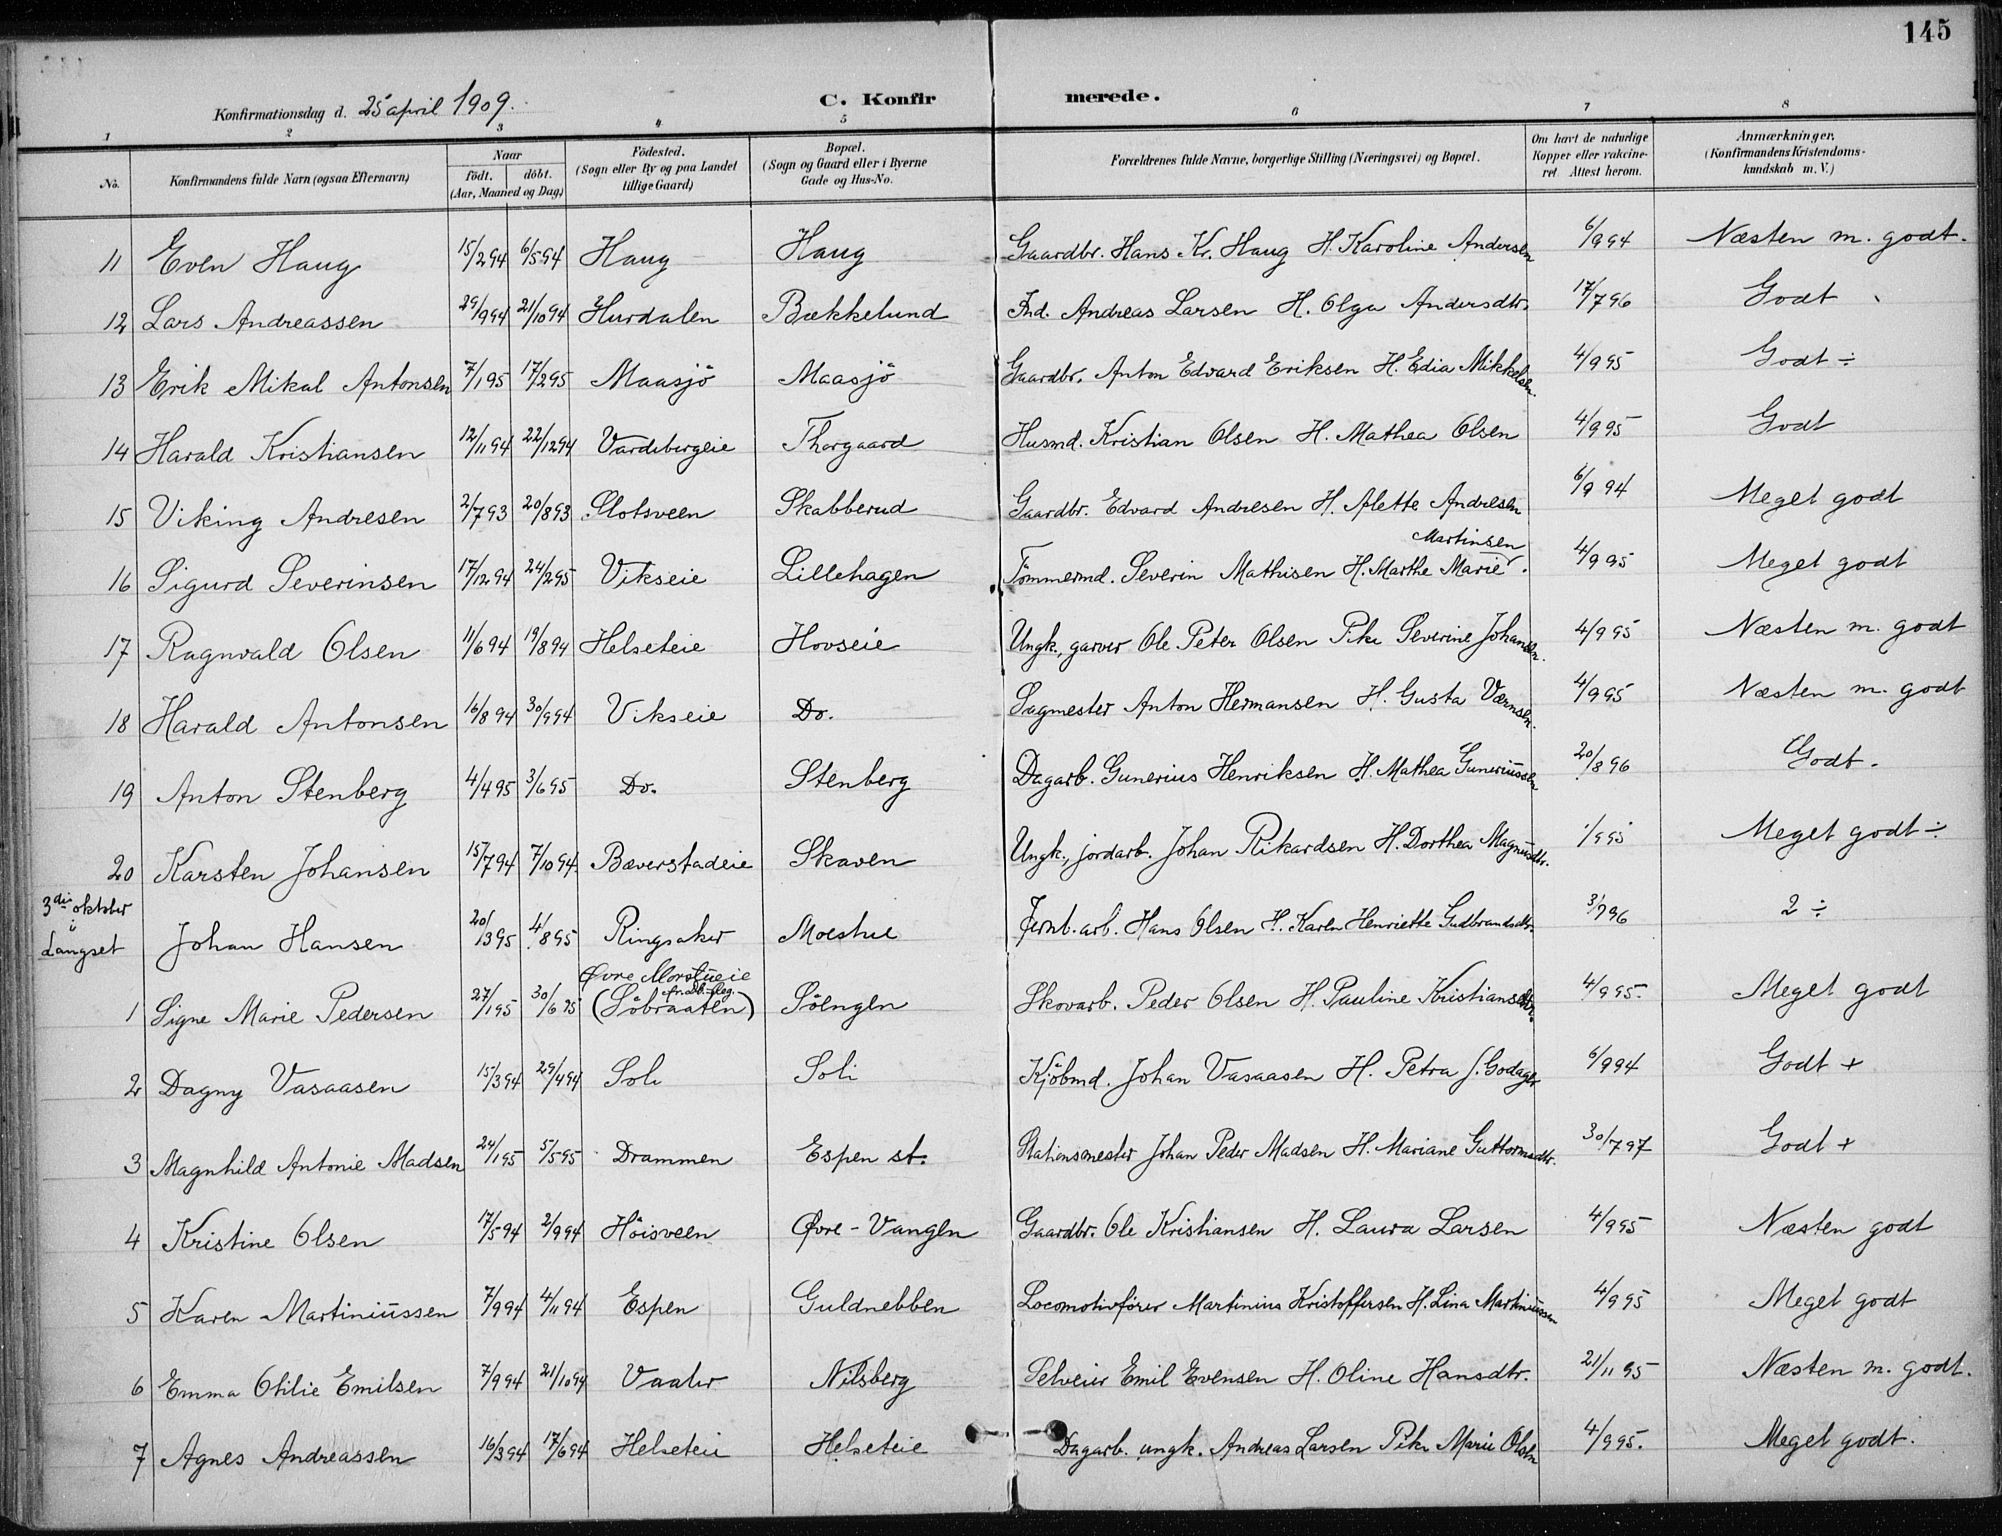 145
Konfirmationsdag d. 25 april 1909.
C. Konfirmerede.
1 2 3 4 5 6 7 8
No. Konfirmandens fulde Navn (ogsaa Efternavn) Naar födt. döbt. (Aar, Maaned og Dag) Födested. (Sogn eller By og paa Landet tillige Gaard) Bopæl. (Sogn og Gaard eller i Byerne Gade og Hus-No. Forældrenes fulde Navne, borgerlige Stilling (Næringsvei) og Bopæl. Om havt de naturlige Kopper eller vakcineret Attest herom. Anmærkninger. (Konfirmandens Kristendomskundskab m. V.)
11 Even Haug 15/2 94 6/5 94 Haug Haug Gaardbr. Hans Kr. Haug H. Karoline Andersen 6/9 94 Næsten m. godt.
12 Lars Andreassen 29/9 94 21/10 94 Hurdalen Bækkelund Ind. Andreas Larsen H. Olga Andersdtr. 17/7 96 Godt
13 Erik Mikal Antonsen 7/1 95 17/2 95 Maasjö Maasjö Gaardbr. Anton Edvard Eriksen H. Edia Mikkelsen. 4/9 95 Godt ÷
14 Harald Kristiansen 12/11 94 22/12 94 Vardebergeie Thorgaard Husmd. Kristian Olsen H. Mathea Olsen 4/9 95 Godt
15 Viking Andresen 2/7 93 20/8 93 Slotsveen Skabberud Gaardbr. Edvard Andresen H. Alette Andresen 6/9 94 Meget godt
16 Sigurd Severinsen 17/12 94 24/2 95 Vikseie Lillehagen Tömmermd. Severin Mathisen H. Marthe Marie Martinsen. 4/9 95 Meget godt
17 Ragnvald Olsen 11/6 94 19/8 94 Helseteie Hovseie Ungk., garver Ole Peter Olsen Pike Severine Johansen. 4/9 95 Næsten m. godt
18 Harald Antonsen 16/8 94 30/9 94 Vikseie Do. Sagmester Anton Hermansen H. Gusta Værnsen. 4/9 95 Næsten m. godt
19 Anton Stenberg 4/4 95 3/6 95 Do. Stenberg Dagarb. Gunerius Henriksen H. Mathea Guneriussen 20/8 96 Godt.
20 Karsten Johansen 15/7 94 7/10 94. Bæverstadeie Skaven Ungk., jordarb. Johan Rikardsen H. Dorthea Magnusdtr. /9 95 Meget godt ÷
3die oktober i Langset Johan Hansen 20/13 95 4/8 95 Ringsaker Moestue Jernb. arb. Hans Olsen H. Karen Henriette Gudbrandsdtr. 3/7 96 2 ÷
1 Signe Marie Pedersen 27/1 95 30/6 95 Øvre Morstueie (Söbraaten) Söengen Skovarb. Peder Olsen H. Pauline Kristiansdtr. 4/9 95. Meget godt
2 Dagny Vasaasen 15/3 94 29/4 94 Soli Soli Kjöbmd. Johan Vasaasen H. Petra f. Godager 6/9 94 Godt +
3 Magnhild Antonie Madsen 24/1 95 5/5 95 Drammen Espen st. Stationsmester Johan Peder Madsen H. Mariane Guttormsdtr. 30/7 97 Godt +
4 Kristine Olsen 17/5 94 2/9 94 Höisveen Øvre-Vangen Gaardbr. Ole Kristiansen H. Laura Larsen 4/9 95 Næsten godt
5 Karen Martiniussen 7/9 94 4/11 94 Espen Guldnebben Locomotivförer Martinius Kristoffersen H. Lina Martiniussen 4/9 95 Meget godt
6 Emma Otilie Emilsen 7/9 94 21/10 94 Vaaler Nilsberg Selveier Emil Evensen H. Oline Hansdtr. 21/11 95 Næsten m. godt.
7 Agnes Andreassen 16/3 94 17/6 94 Helseteie Helseteie Dagarb. ungk. Andreas Larsen Pike Marie Olsen 4/9 95. Meget godt.